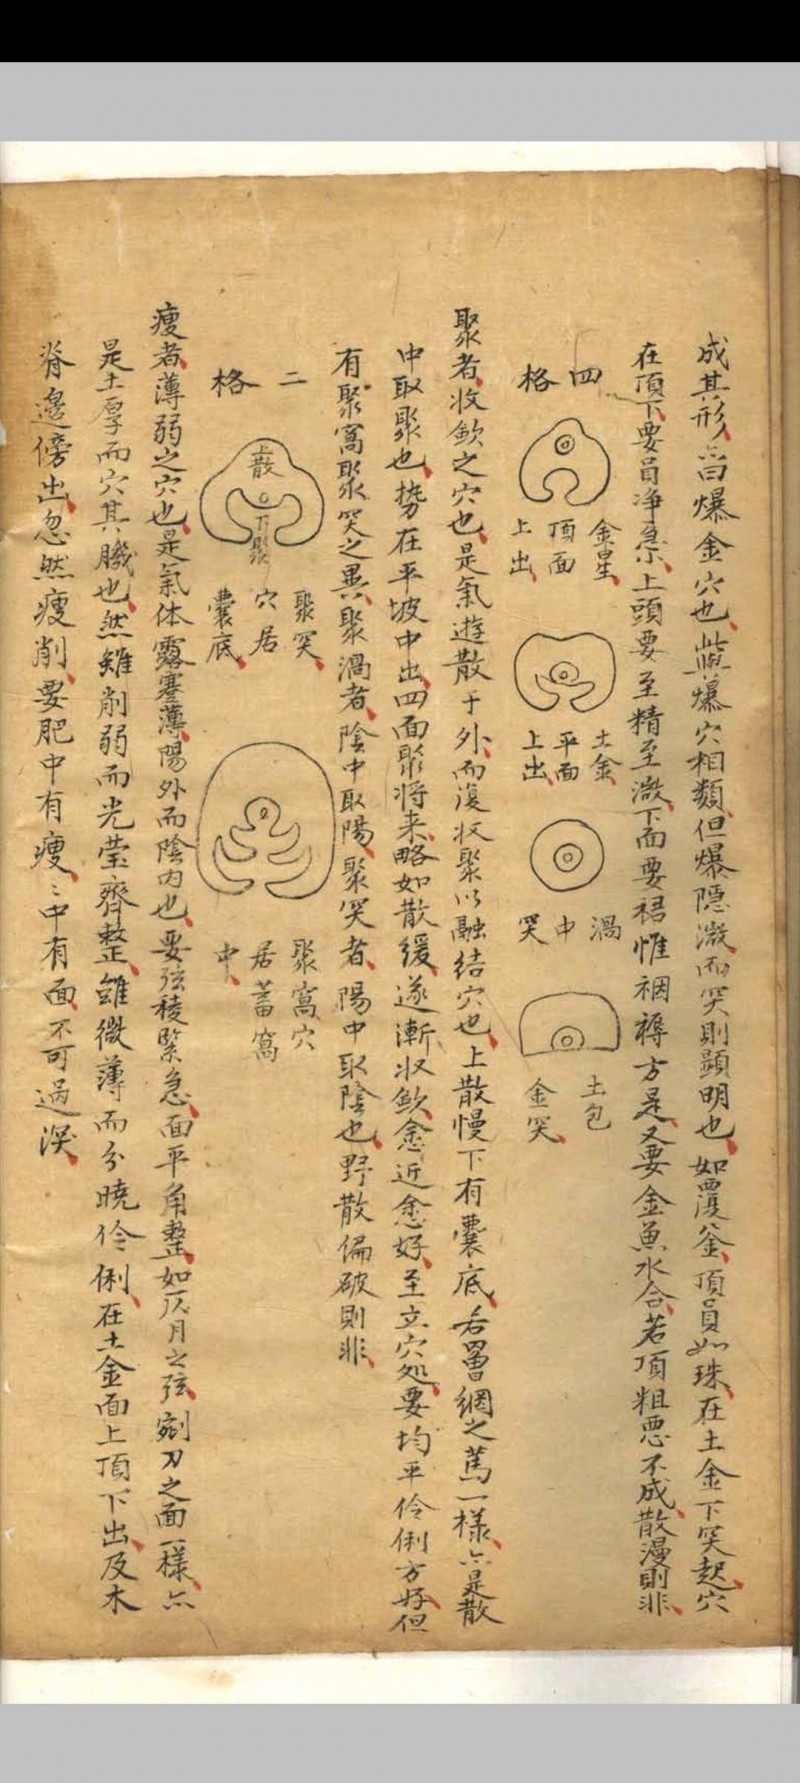 成其形、當爆金穴也、與爆穴相類、但爆隱微而突則顯明也、如覆釜、頂員如珠、在土金下突起、穴
在頂下、要員净急、上頭要至精至微、下面要裙惟裀褥方是、又要金魚水合、若頂粗恶不成、散漫則非、
四格
金星、頂面上出、
土金、平面上出、
渦中突
土包金突、
聚者、收歛之穴也、是氣遊散于外、而復收聚以融結穴也、上散慢下有囊底、右罾網之馬一樣、亦是散
中取聚也、势在平坡中出、四面聚將来、略如散緩、遂漸收歛、愈近愈好、至立穴処、要均平伶俐方好、但
有聚窩聚突之異、聚渦者、陰中取陽、聚突者、陽中取陰也、野散偏破則非、
二格
上散
下聚
聚突、穴居囊底、
聚窩穴居蓄窩中、
瘦者、薄弱之穴也、是氣体露蹇薄、陽外而陰内也、要弦稜緊急、面平角整、如仄月之弦、割刀之面一樣、亦
是土厚而穴其臕也、然雖削弱而光莹齊整、雖微薄而分曉伶俐、在土金面上頂下出、及木
脊邊傍出、忽然瘦削、要肥中有瘦、〻中有面、不可過深、